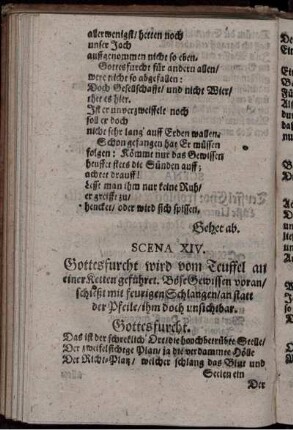 allerwenigst/ hetten noch
unser Joch
auffgenommen nicht so eben.
Gottesfurcht für andern allen/
were nicht so abgefallen:
Doch Gesellschafft/ und nicht Wier/
thet es hier.
Ist er unverzweiffelt noch
soll er doch
nicht sehr lang auff Erden wallen.
Schon gefangen hat Er müssen
folgen: Kömmt nur das Gewissen
heuffet stets die Sünden auff;
achtet drauff!
Lesst man ihm nur keine Ruh/
er greifft zu/
hencket/ oder wird sich spissen.
Gehet ab.
SCENA XIV.
Gottesfurcht wird vom Teuffel an
einer Ketten geführet. Böse Gewissen voran/
schiesst mit feurigen Schlangen/ an statt
der Pfeile/ ihm doch unsichtbar.
Gottesfurcht.
Das ist der schrecklich' Ort/ die hochbetrübte Stelle/
Der zweifelsichtge Plan/ ja die verdammte Hölle
Der Richt-Platz/ welcher schlang das Blut und
Seelen ein
Der